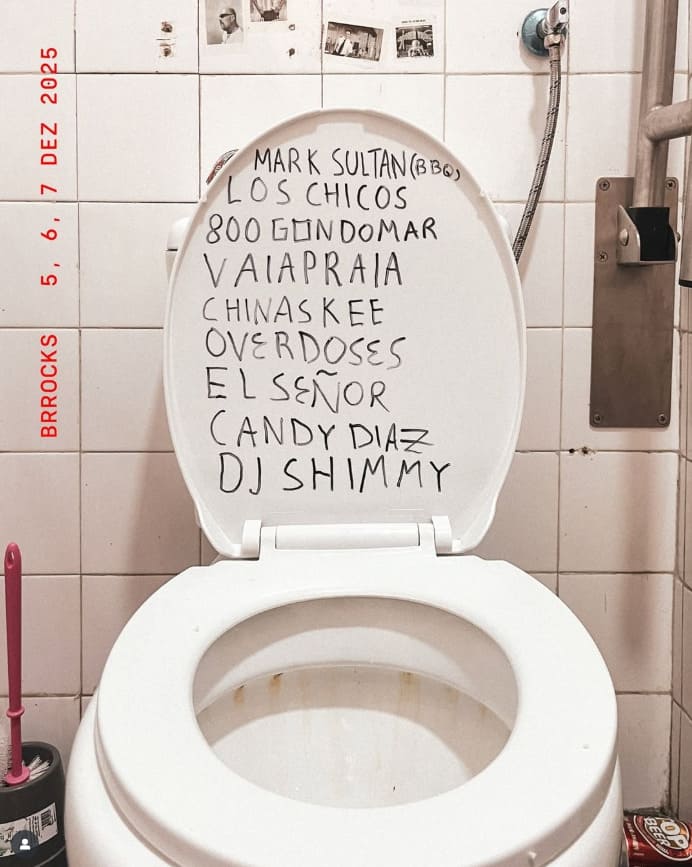 BRROCKS 5, 6, 7 DEZ 2025
MARK SULTAN (BBQ)
LOS CHICOS
800 GONDOMAR
VAIAPRAIA
CHINASKEE
OVERDOSES
EL SEÑOR
CANDY DIAZ
DJ SHIMMY
TOP
BEER